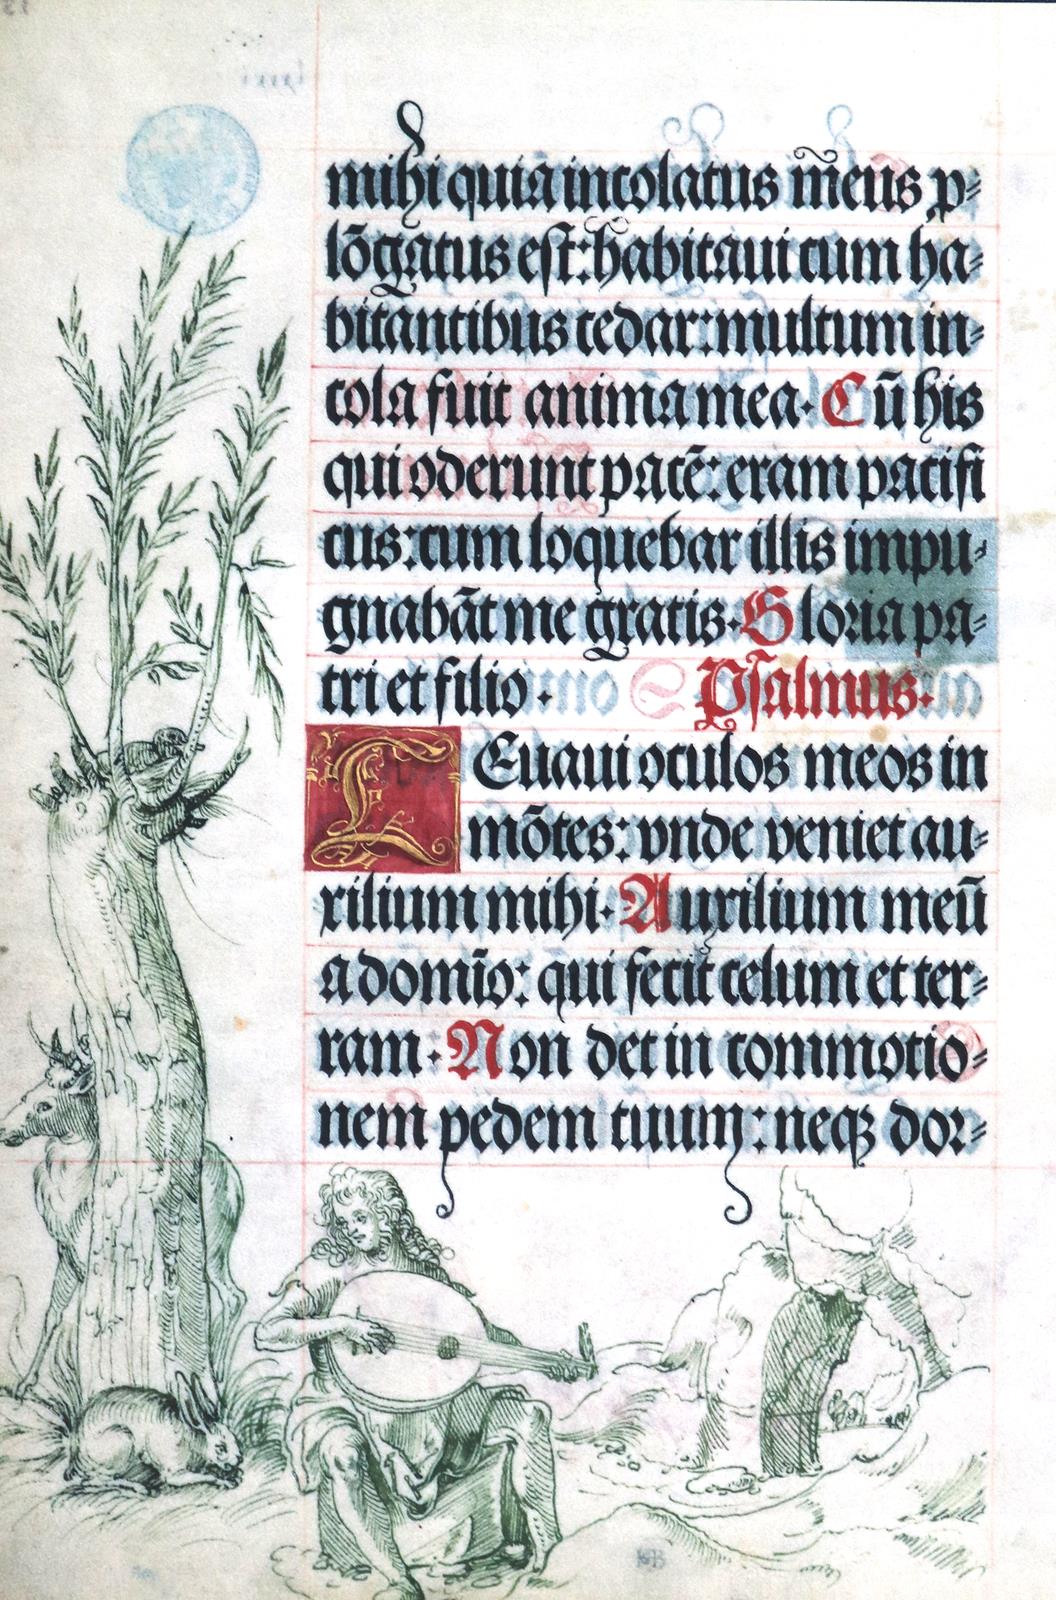 mihi quia incolatus meus p⸗
lōgatus est: habitaui cum ha⸗
bitantibus cedar: multum in⸗
cola fuit anima mea. Cū his
qui oderunt pacē: eram pacifi
cus: cum loquebar illis impu⸗
gnabāt me gratis. Gloria pa⸗
tri et filio. Psalmus.
LEuaui oculos meos in
mōtes: vnde veniet au⸗
xilium mihi. Auxilium meū
a domīo: qui fecit celum et ter⸗
ram. Non det in commotio⸗
nem pedem tuum: neqꝫ dor⸗